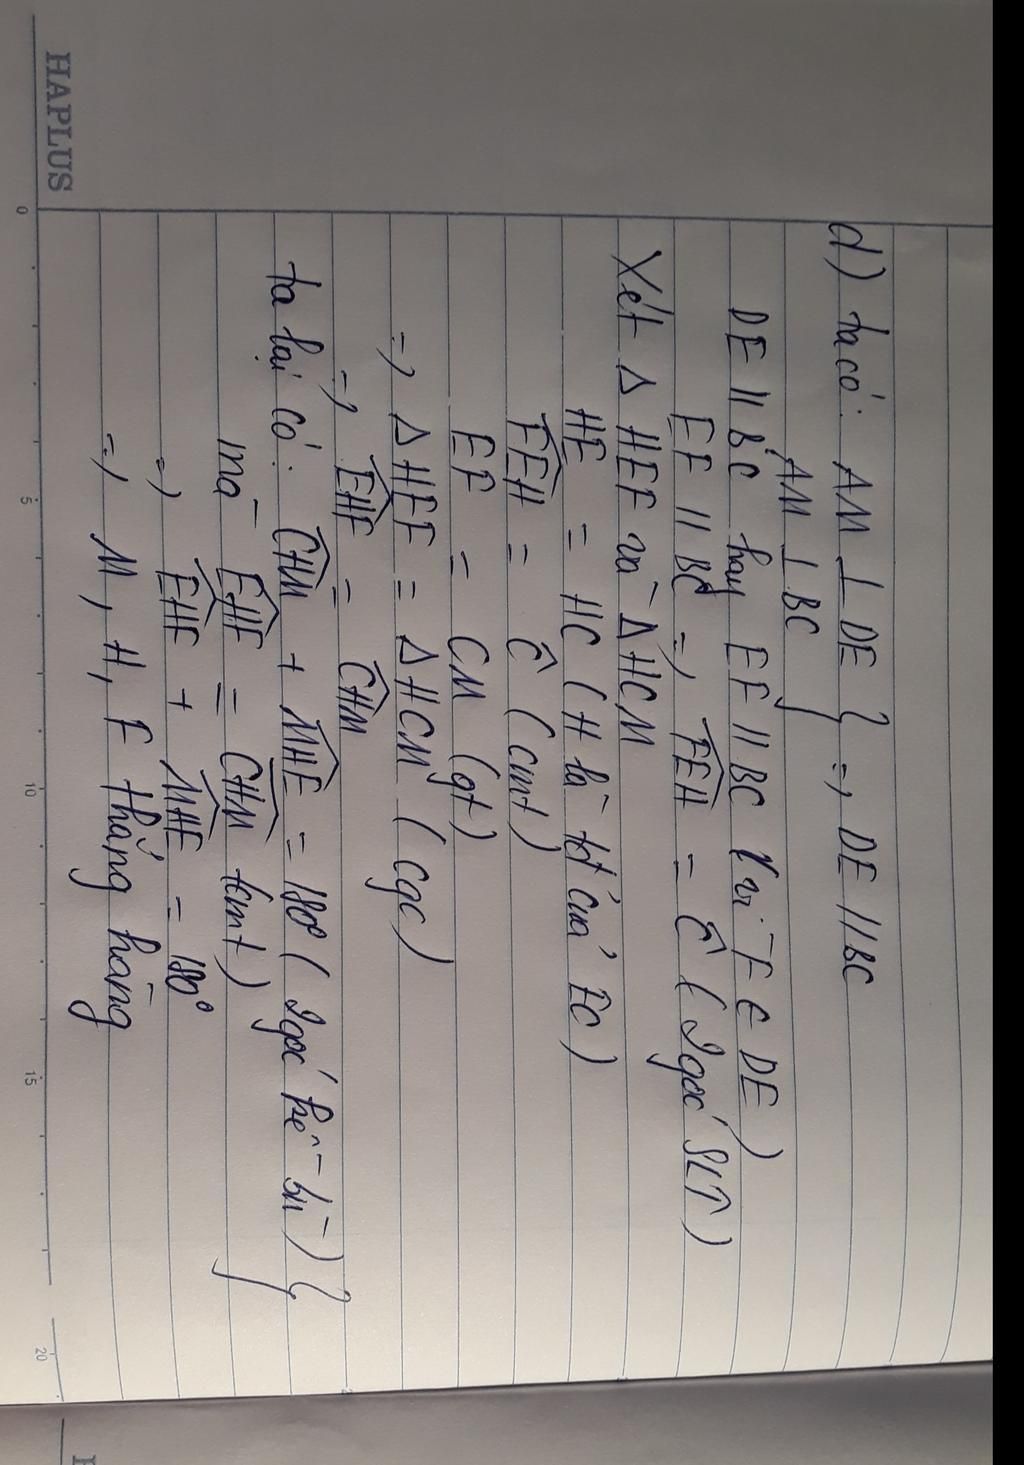 HAPLUS
d) ta có: AM ⊥ DE } => DE // BC
AM ⊥ BC
DE // BC hay EF // BC (vì F ∈ DE)
EF // BC => FEH = Ĉ (2 góc SLT)
Xét Δ HEF và Δ HCM
HE = HC (H là tđ của EC)
FEH = Ĉ (cmt)
EF = CM (gt)
=> Δ HEF = Δ HCM (cgc)
=> EHF = CHM
ta lại có: CHM + MHE = 180° (2 góc kề-bù) }
mà EHF = CHM (cmt)
=> EHF + MHE = 180°
=> M, H, F thẳng hàng
0 5 10 15 20